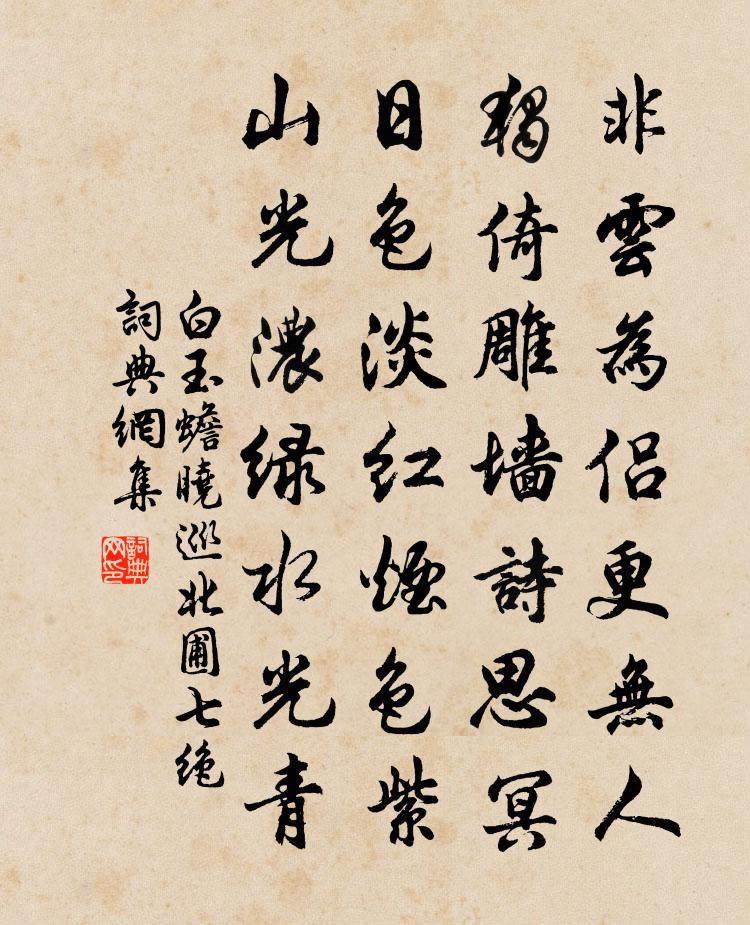 非雲為侶更無人
獨倚雕墙詩思冥
日色淡红煙色紫
山光濃绿水光青
白玉蟾曉巡北圃七绝
詞典網集
詞典网印